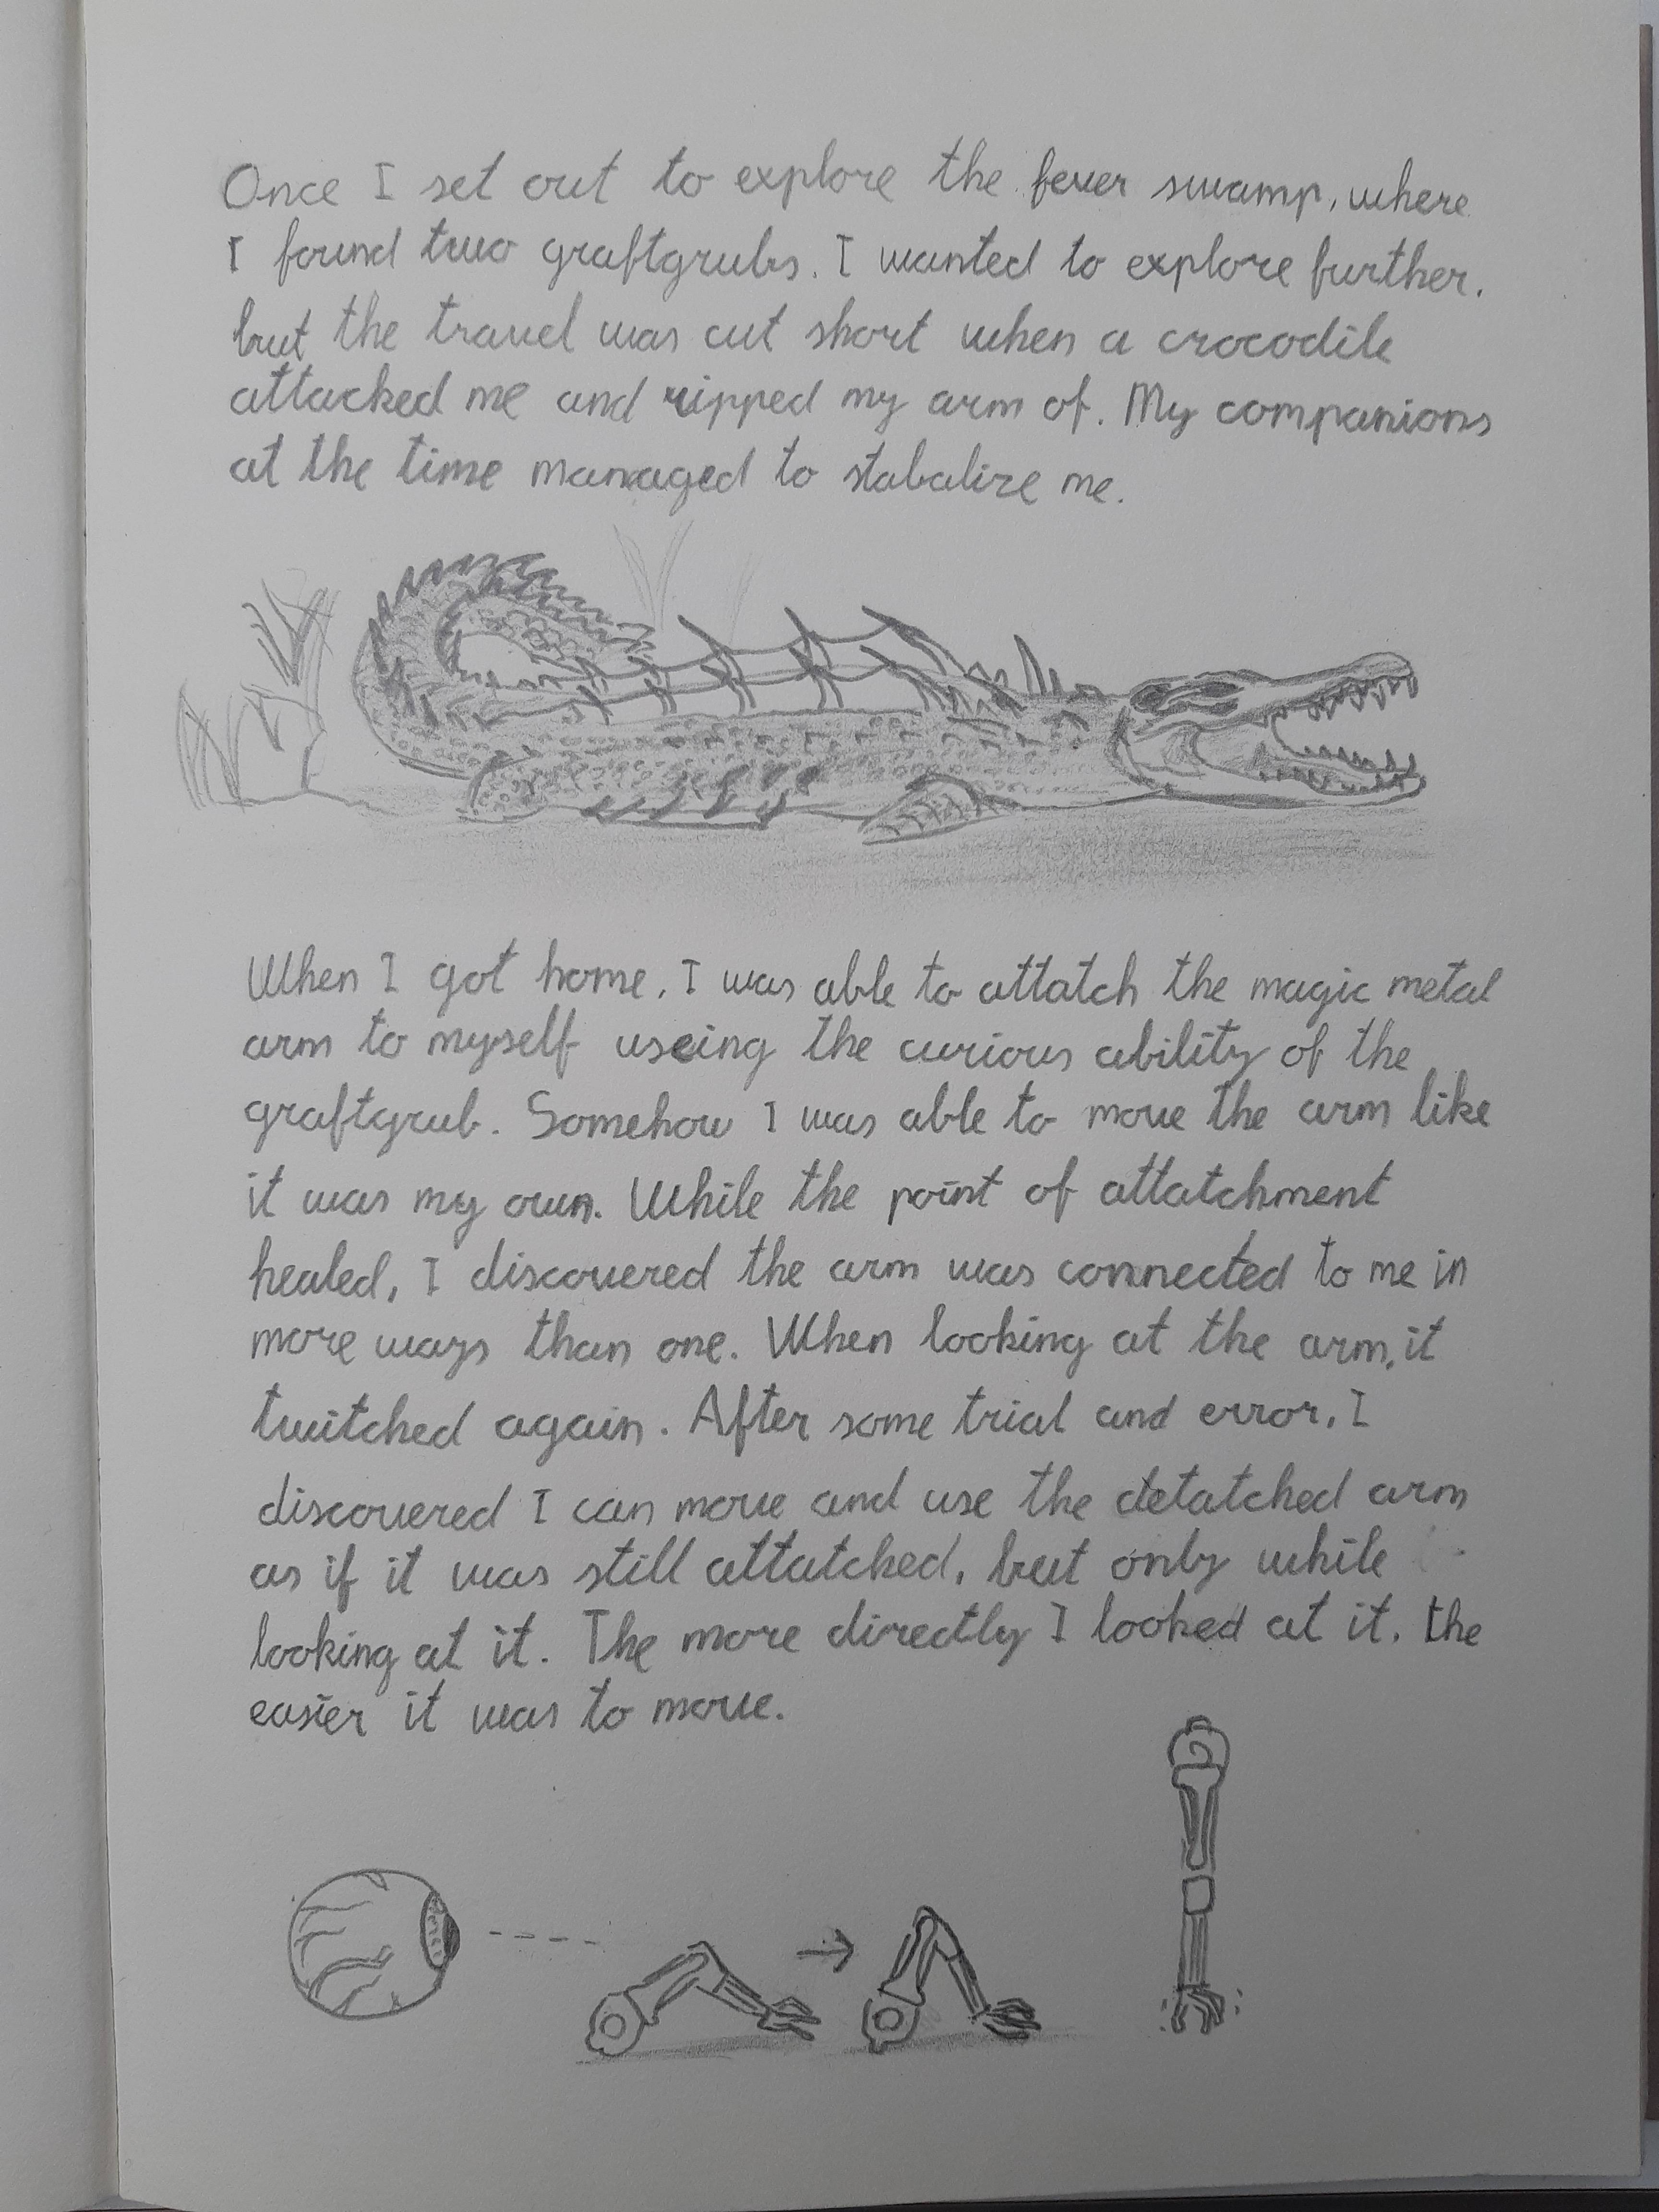 Once I set out to explore the fever swamp, where
I found two graftgrubs. I wanted to explore further,
but the travel was cut short when a crocodile
attacked me and ripped my arm of. My companions
at the time managed to stabalize me.
When I got home, I was able to attatch the magic metal
arm to myself useing the curious ability of the
graftgrub. Somehow I was able to move the arm like
it was my own. While the point of attatchment
healed, I discovered the arm was connected to me in
more ways than one. When looking at the arm, it
twitched again. After some trial and error, I
discovered I can move and use the detatched arm
as if it was still attatched, but only while
looking at it. The more directly I looked at it, the
easier it was to move.